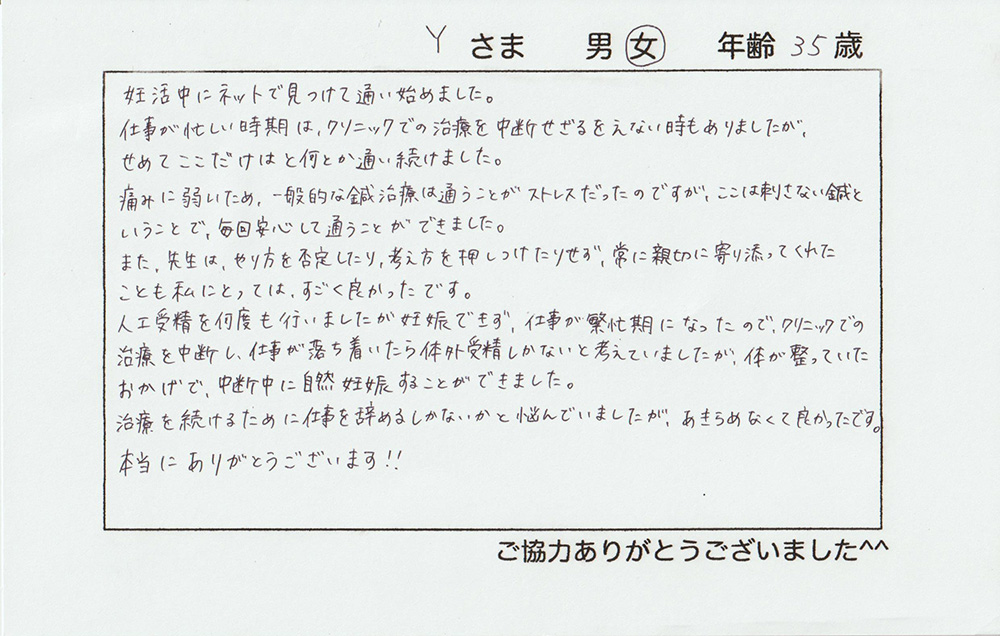 Y さま 男 女 年齢 35 歳
妊活中にネットで見つけて通い始めました。
仕事が忙しい時期は、クリニックでの治療を中断せざるをえない時もありましたが、
せめてここだけはと何とか通い続けました。
痛みに弱いため、一般的な鍼治療は通うことがストレスだったのですが、ここは刺さない鍼と
いうことで、毎回安心して通うことができました。
また、先生は、やり方を否定したり、考え方を押しつけたりせず、常に親切に寄り添ってくれた
ことも私にとっては、すごく良かったです。
人工受精を何度も行いましたが妊娠できず、仕事が繁忙期になったので、クリニックでの
治療を中断し、仕事が落ち着いたら体外受精しかないと考えていましたが、体が整っていた
おかげで、中断中に自然妊娠することができました。
治療を続けるために仕事を辞めるしかないかと悩んでいましたが、あきらめなくて良かったです。
本当にありがとうございます!!
ご協力ありがとうございました^^